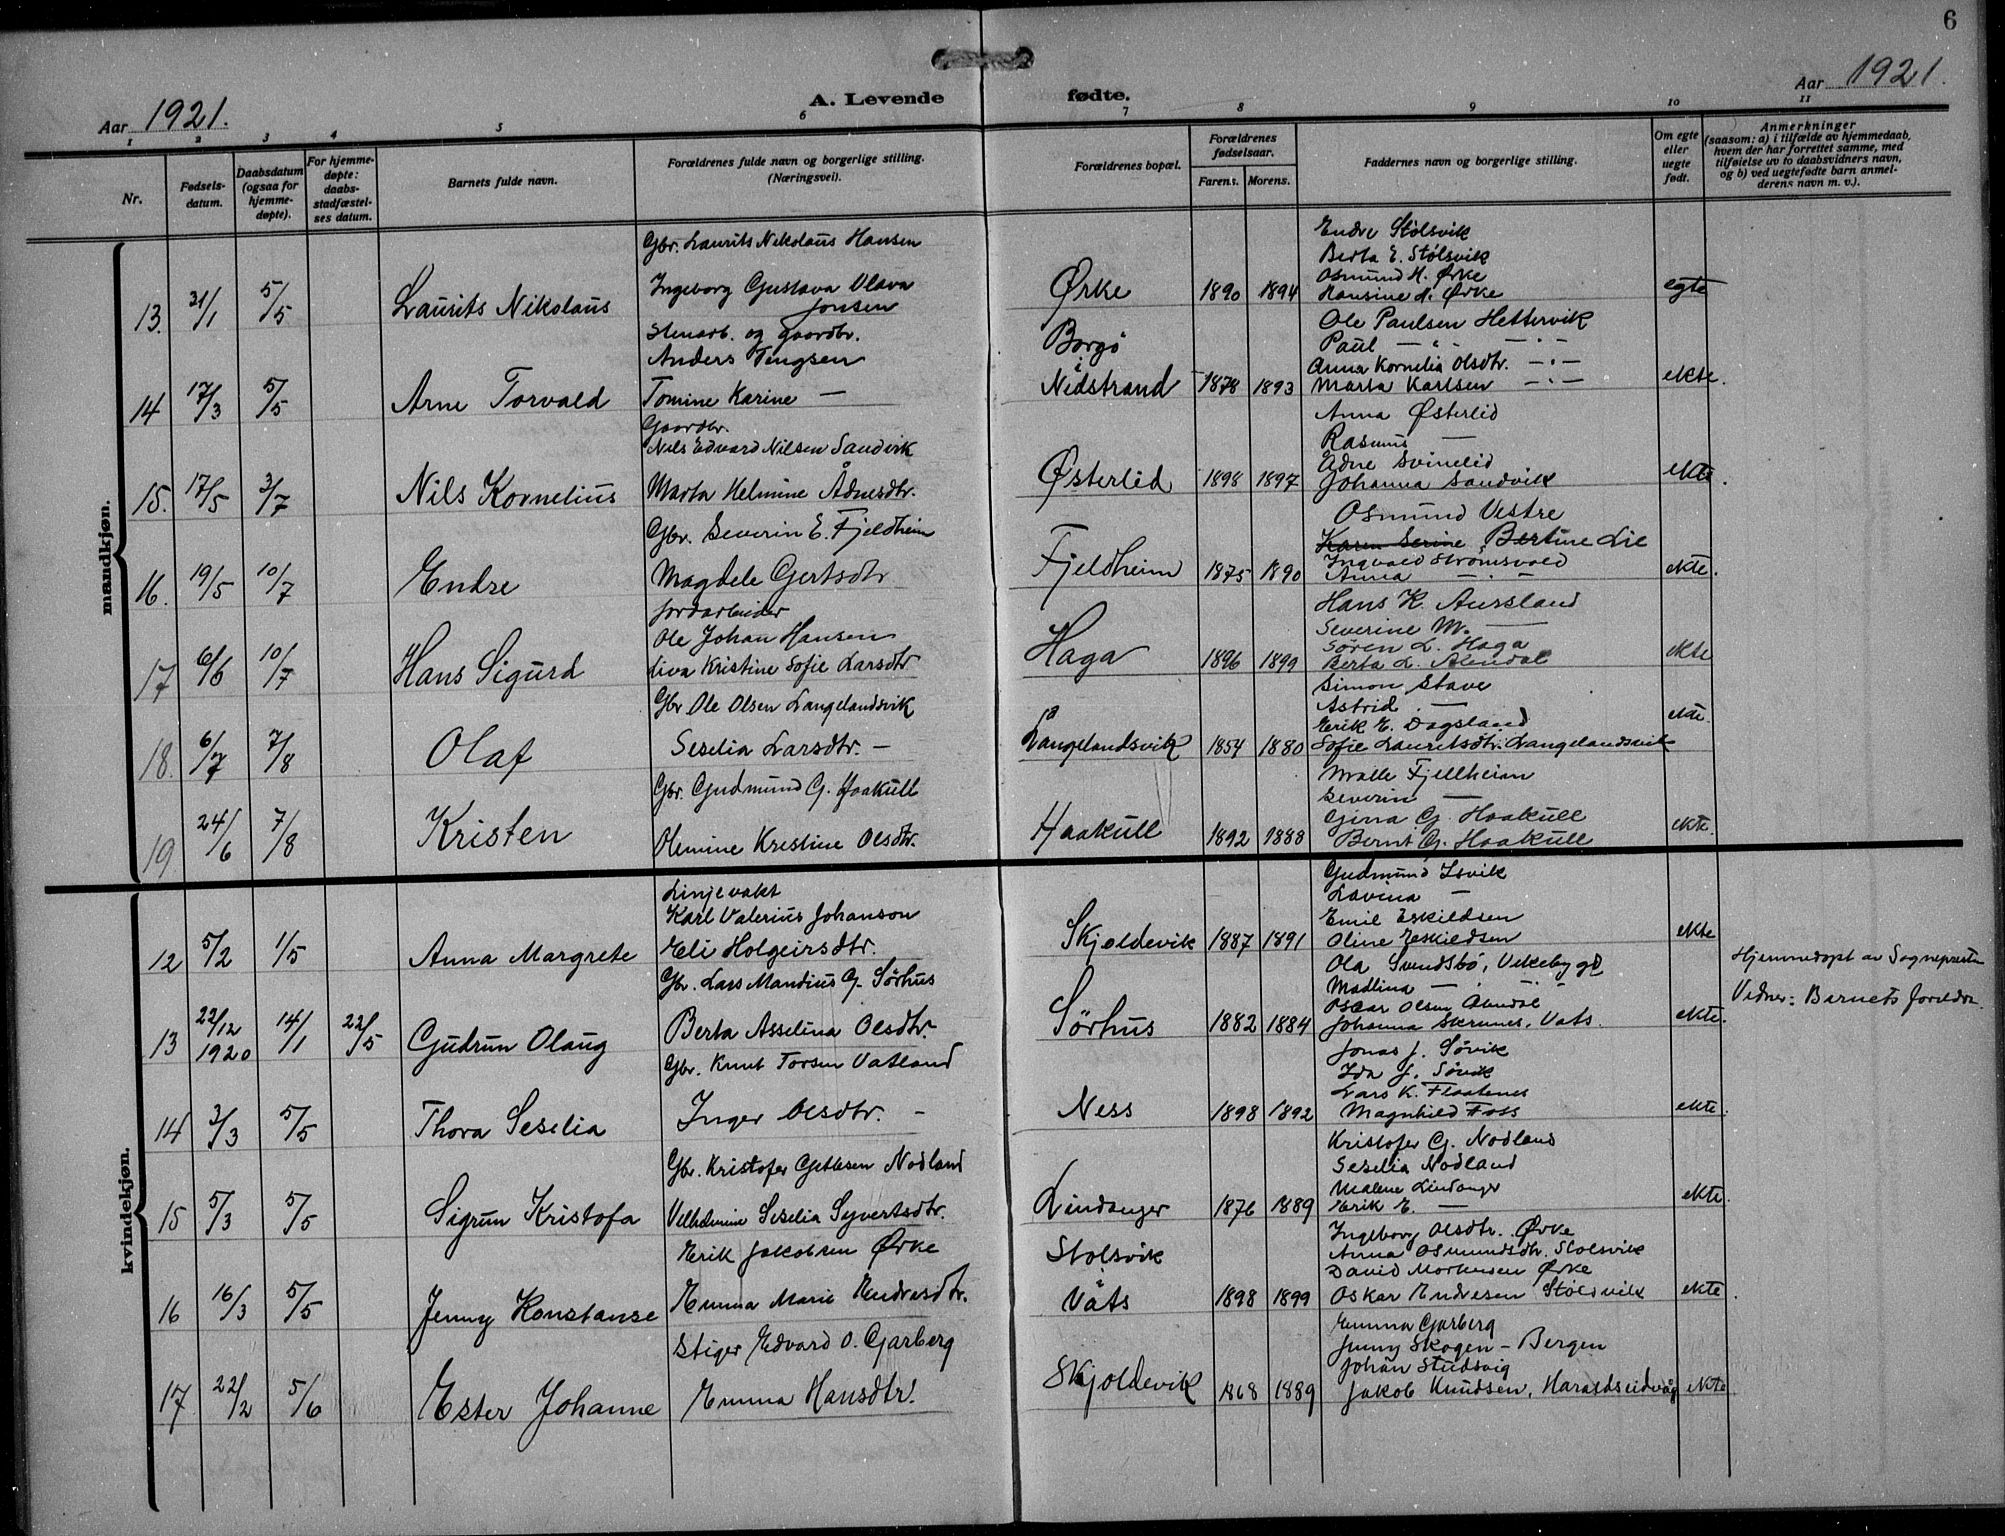 6
Aar 1921.
A. Levende fødte.
Aar 1921.
1 2 3 4 5 6 7 8 9 10 11
Nr.
Fødsels-datum.
Daabsdatum (ogsaa for hjemme-døpte).
For hjemme-døpte: daabs-stadfæstel-ses datum.
Barnets fulde navn.
Forældrenes fulde navn og borgerlige stilling. (Næringsvei).
Forældrenes bopæl.
Forældrenes fødselsaar.
Farens. Morens.
Faddernes navn og borgerlige stilling.
Om egte eller uegte født.
Anmerkninger (saasom: a) i tilfælde av hjemmedaab, hvem der har forrettet samme, med tilføielse uv to daabsvidners navn, og b) ved uegtefødte barn anmel-derens navn m. v.).
mandkjøn.
13. 31/1 5/5 Laurits Nikolaus
Gbr. Laurits Nikolaus Hansen
Ingeborg Gustava Olava Jonsen
Ørke 1890 1894
Endre Stølsvik
Berta E. Stølsvik
Osmund H. Ørke
Hansine H. Ørke
egte
14 17/3 5/5 Arne Torvald
Stenarb. og gaardbr.
Anders Tengsen
Tomine Karine —
Borgø
i
Nedstrand 1878 1893
Ole Paulsen Hettervik
Paul — " — " —
Anna Kornelia Olsdtr. — " —
Marta Karlsen — " —
ekte.
15. 17/5 3/7 Nils Kornelius
Gaardbr.
Nils Edvard Nilsen Sandvik
Marta Helmine Ådnesdtr.
Østerlid 1898 1897
Anna Østerlid
Rasmus —
Adne Svinelid
Johanna Sandvik
ekte.
16. 19/5 10/7 Endre
Gbr. Severin E. Fjeldheim
Magdele Gertsdtr
Fjeldheim 1875 1890
Osmund Vestre
Karen Serine Bertine Lie
Ingvald Strømsvold
Anna — " —
ekte.
17 6/6 10/7 Hans Sigurd
Jordarbeider
Ole Johan Hansen
Liva Kristine Sofie Larsdtr
Haga 1896 1899
Hans K. Aursland
Severine M. —
Søren L. Haga
Berta L. Alendal
ekte
18. 6/7 7/8 Olaf
Gbr Ole Olsen Langelandsvik
Seselia Larsdtr. —
Langelandsvik 1854 1880
Simon Stave
Astrid —
Erik E. Dagsland
Sofie Lauritsdtr. Langelandsvik
ekte.
19 24/6 7/8 Kristen
Gbr. Gudmund G. Haakull
Olemine Kristine Olsdtr.
Haakull 1892 1888
Malle Fjellheim
Severin —
Gina G. Haakull
Bernt G. Haakull
ekte.
kvindekjøn.
12 5/2 1/5 Anna Margrete
Linjevakt
Karl Valerius Johanson
Eli Holgeirsdtr.
Skjoldevik 1887 1891
Gudmund Isvik
Lovina —
Emil Eskildsen
Oline Eskildsen
ekte
13 22/12 1920 14/1 22/5 Gudrun Olaug
Gbr. Lars Mandius G. Sørhus
Berta Asselina Olsdtr.
Sørhus 1882 1884
Ola Svendsbø, Vikebygd
Madlina — " —
Oscar Olsen Alendal
Johanna Skrunes, Vats.
ekte.
Hjemmedøpt av Sogneprsten
Vidner: Barnets foreldre
14 3/3 5/5 Thora Seselia
Gbr. Knut Torsen Vatland
Inger Olsdtr. —
Ness 1898 1892
Jonas J. Søvik
Ida J. Søvik
Lars K. Flaatenes
Magnhild Foss
ekte.
15 5/3 5/5 Sigrun Kristofa
Gbr. Kristofer Gitlesen Nodland
Vilhelmine Seselia Syvertsdtr.
Lindanger 1876 1889
Kristofer G. Nodland
Seselia Nodland
Malene Lindanger
Erik E. —
ekte.
16 16/3 5/5 Jenny Konstanse
Erik Jakobsen Ørke
Emma Marie Endresdtr.
Stolsvik
i
Vats 1898 1899
Ingeborg Olsdtr. Ørke
Anna Osmundsdtr. Stolsvik
David Mortensen Ørke
Oskar Endresen Stølsvik
ekte.
17 22/2 5/6 Ester Johanne
Stiger Edvard O. Garberg
Emma Hansdtr.
Skjoldevik 1868 1889
Emma Garberg
Jenny Skogen - Bergen
Johan Studsvig
Jakob Knudsen, Haraldseidvåg
ekte